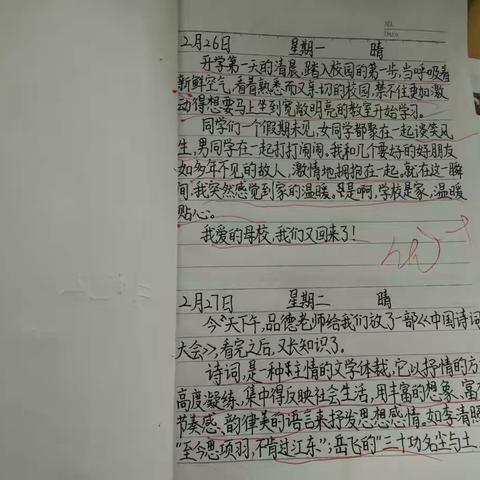 2月26日 星期一 晴
开学第一天的清晨,踏入校园的第一步,当呼吸着
新鲜空气,看着熟悉而又亲切的校园,禁不住更加激
动得想要马上坐到宽敞明亮的教室开始学习。
同学们一个假期未见,女同学都聚在一起谈笑风
生,男同学在一起打打闹闹。我和几个要好的好朋友
如多年不见的故人,激情地拥抱在一起。就在这一瞬
间,我突然感觉到家的温暖。是啊,学校是家,温暖
贴心。
我爱的母校,我们又回来了!
2月27日 星期二 晴
今天下午,品德老师给我们放了一部《中国诗词
大会》,看完之后,又长知识了。
诗词,是一种主情的文学体裁,它以抒情的方
高度凝练,集中得反映社会生活,用丰富的想象、富有
节奏感、韵律美的语言来抒发思想感情。如李清照
"至今思项羽,不肯过江东";岳飞的"三十功名尘与土